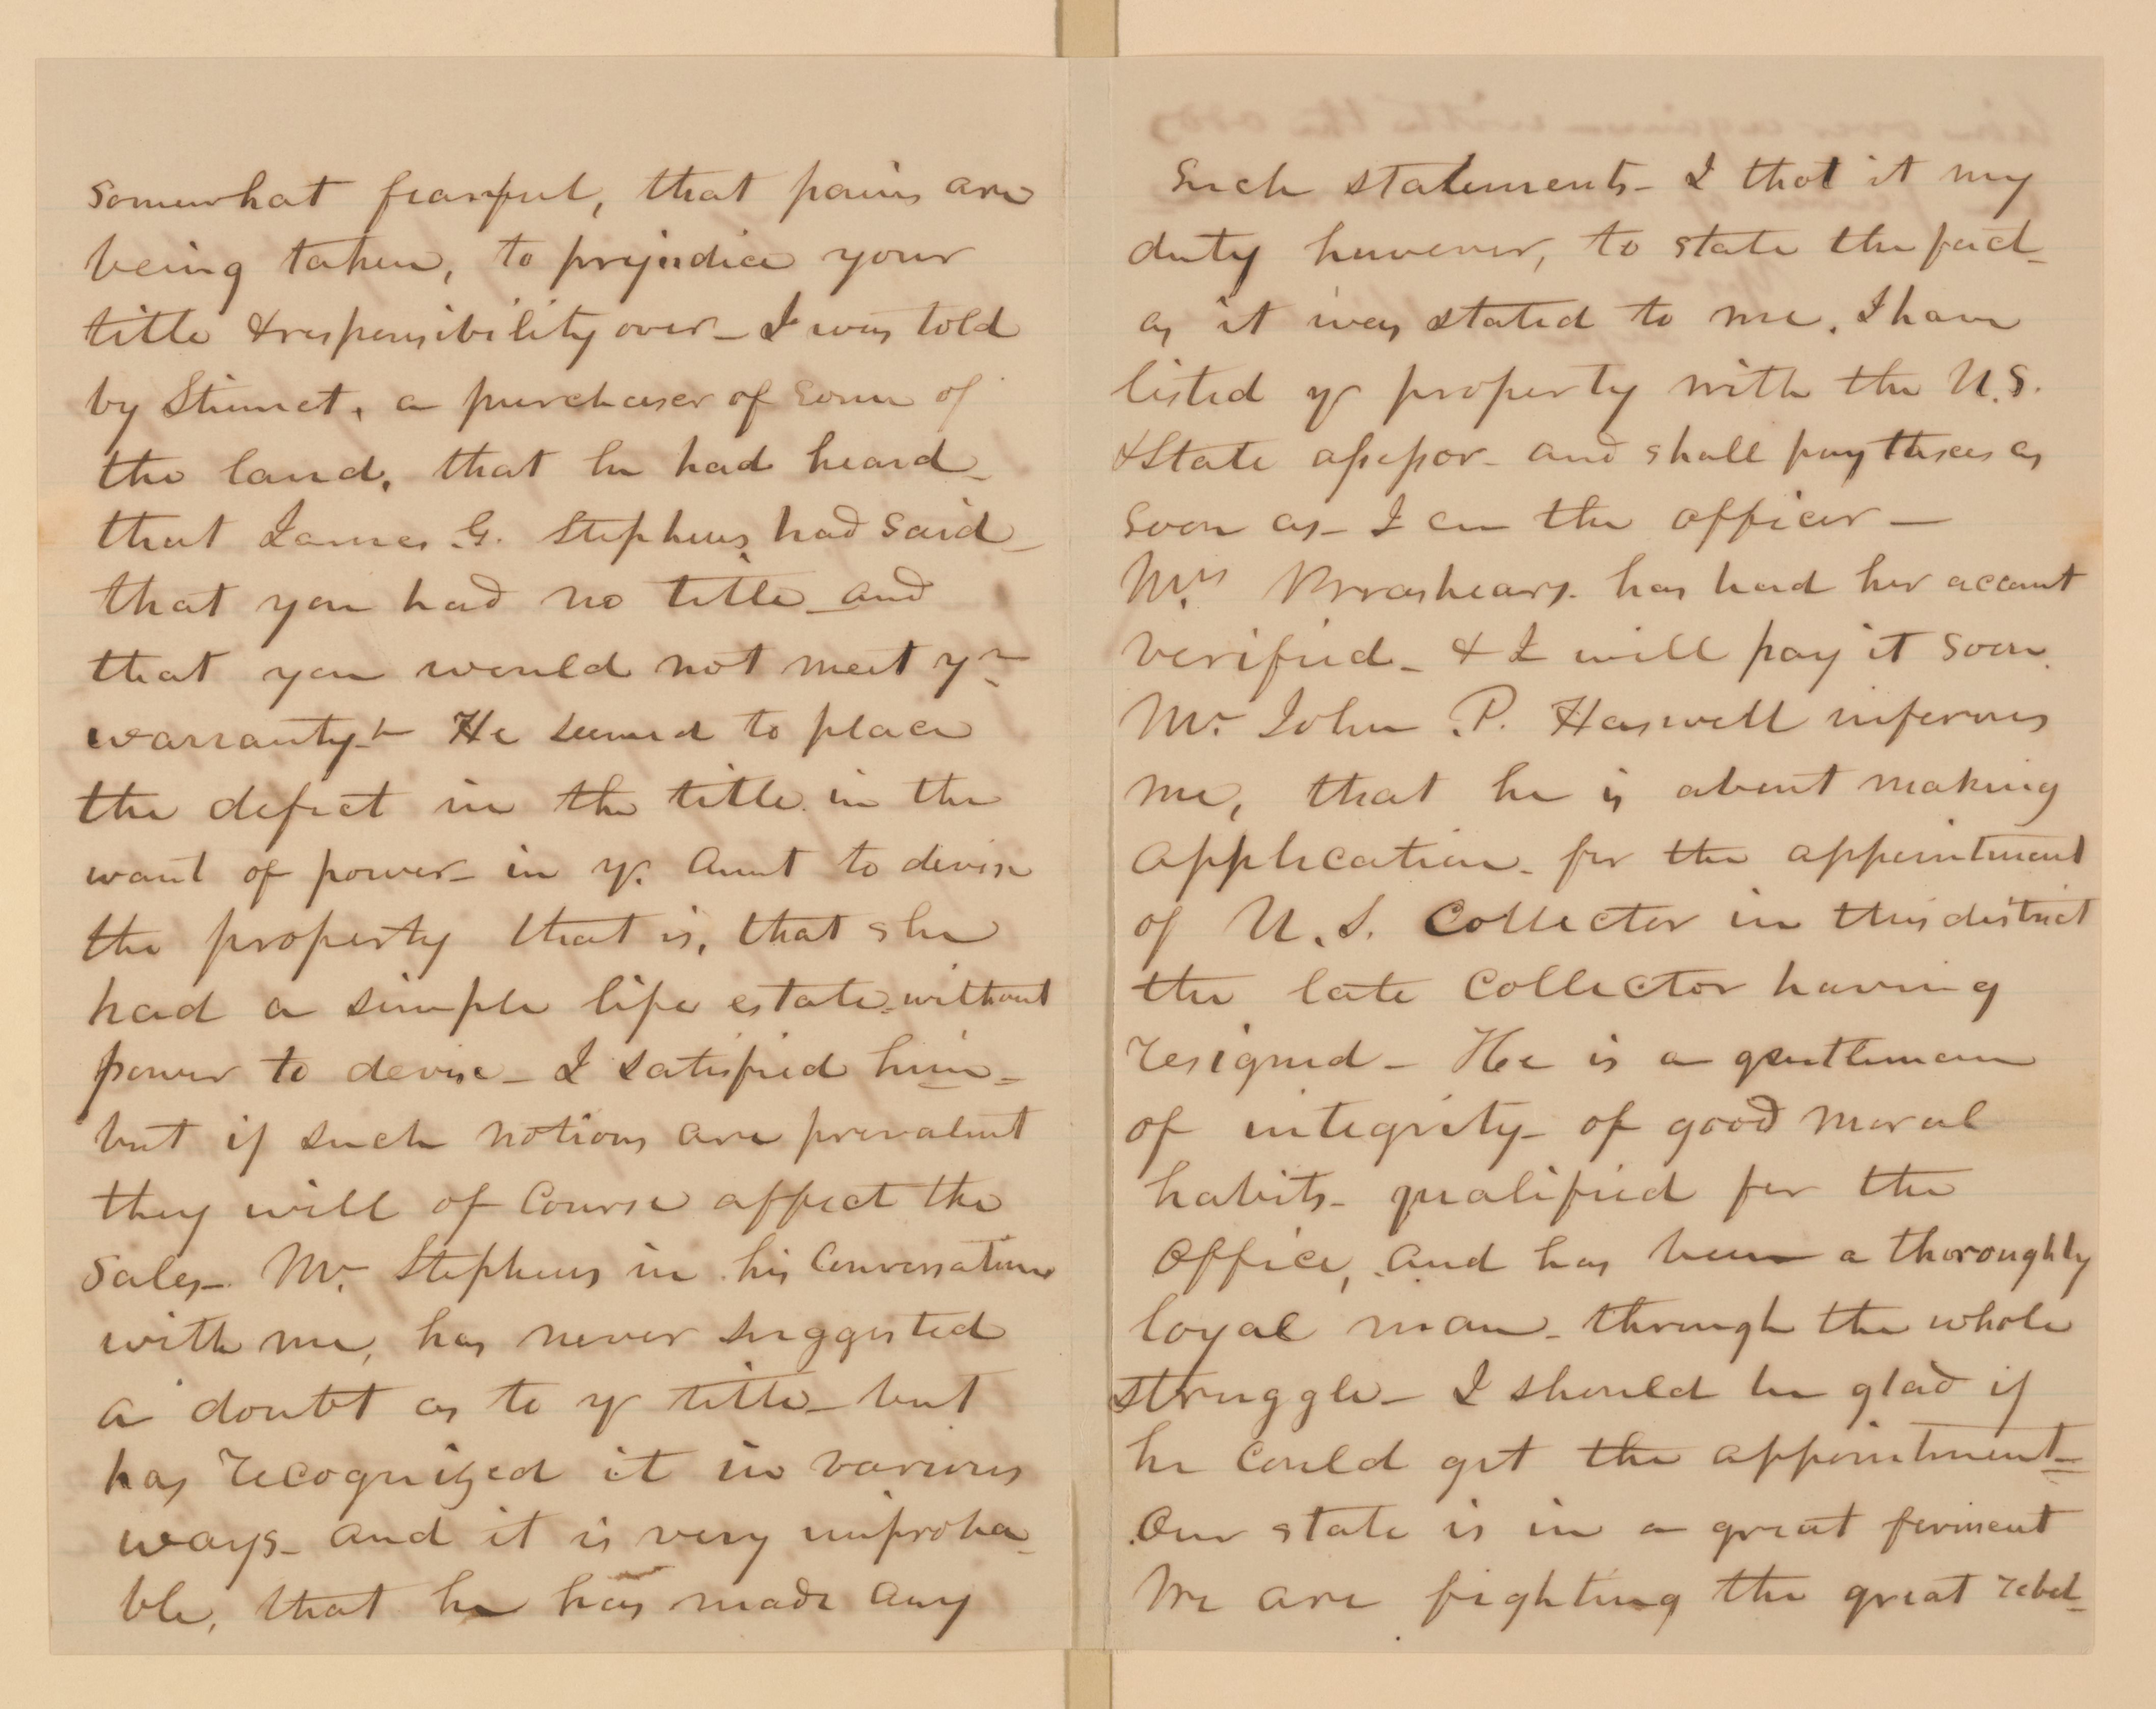 somewhat fearful, that pains are
being taken, to prejudice your
title & responsibility over - I was told
by Stinnet, a purchaser of some of
the land, that he had heard -
that James G. Stephens had said -
that you had no title - and
that you would not meet yr
warranty - He seemed to place
the defect in the title in the
want of power - in yr. Aunt to devise
the property that is, that she
had a simple life estate - without
power to devise - I satisfied him -
but if such notions are prevalent
they will of Course affect the
Sales - Mr. Stephens in his Conversations
with me, has never suggested
a doubt as to yr title - but
has recognized it in various
ways - and it is very improba-
ble, that he has made any
Such statements - I thot it my
duty however, to state the fact -
as it was stated to me. I have
listed yr property with the U.S.
& State assessor - and shall pay taxes as
soon as - I can the officer -
Mrs. Brashears has had her account
verified - & I will pay it soon.
Mr. John P. Haswell informs
me, that he is about making
application - for the appointment
of U.S. Collector in this district
the late Collector having
resigned - He is a gentleman
of integrity - of good moral
habits - qualified for the
Office, and has been a thoroughly
loyal man - through the whole
struggle - I should be glad if
he could get the appointment -
Our state is in a great ferment
We are fighting the great rebel-